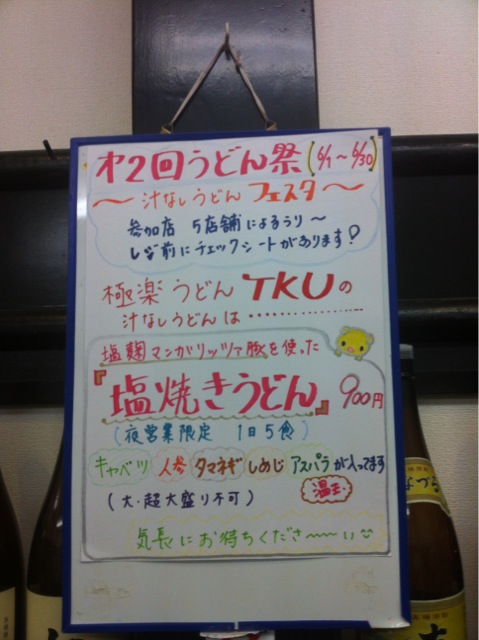 オ2回うどん祭(6/1〜6/30)
〜汁なしうどん フェスタ〜
参加店 5店舗によるうり〜
レジ前にチェックシートがあります!
極楽うどん TKUの
汁なしうどんは………………
塩麹マンガリッツァ豚を使った
『塩焼きうどん』900円
(夜営業限定 1日5食)
キャベツ 人参 タマネギ しめじ アスパラが入ってます
温玉
(大・超大盛り不可)
気長にお待ちくださ〜〜い
なづる